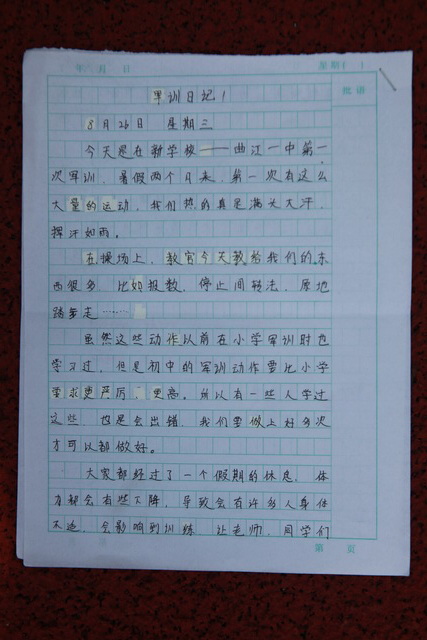 年 月 日 星期( )
批语
军训日记1
8月26日 星期三
今天是在新学校——曲江一中第一
次军训，暑假两个月来，第一次有这么
大量的运动，我们热的真是满头大汗，
挥汗如雨。
在操场上，教官今天教给我们的东
西很多，比如报数，停止间转法，原地
踏步走……
虽然这些动作以前在小学军训时也
学习过，但是初中的军训动作要比小学
要求更严厉，更高。所以有一些人学过
这些，也是会出错，我们要做上好多次
才可以都做好。
大家都经过了一个假期的休息，体
力都会有些下降，导致会有许多人身体
不适，会影响到训练，让老师，同学们
第 页